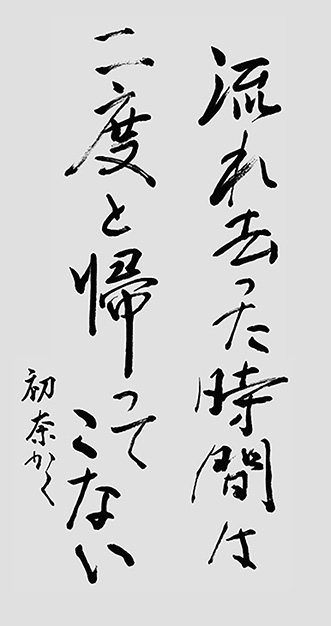 流れ去った時間は
二度と帰って
こない
初奈かく